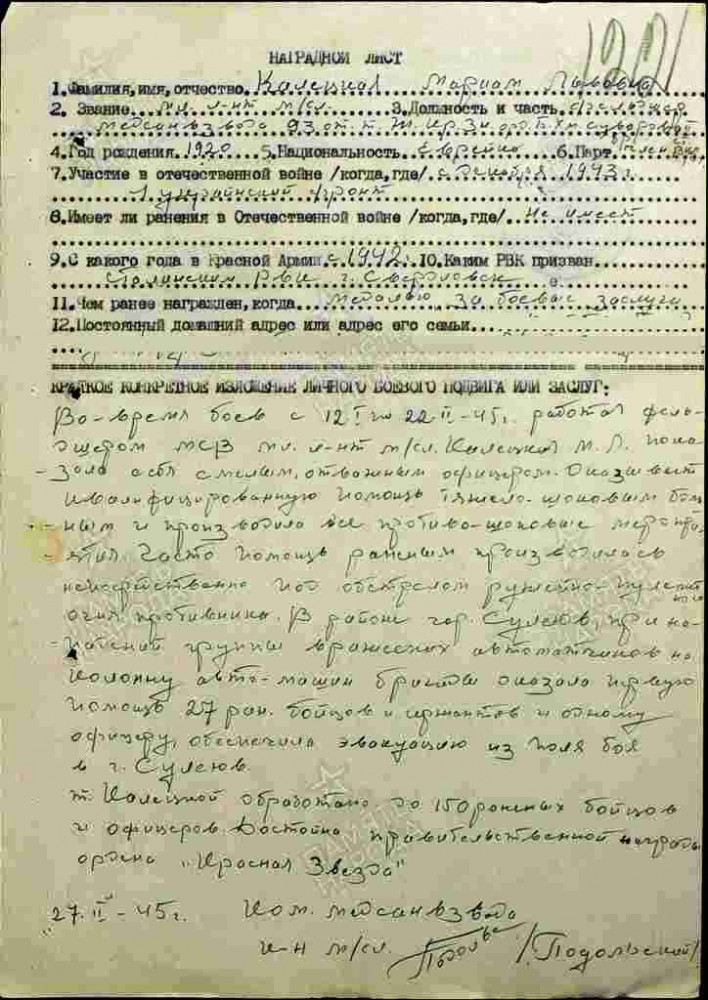 НАГРАДНОЙ ЛИСТ
1. Фамилия, имя, отчество. Калецкая Мариам Львовна
2. Звание... мл. л-нт м/сл. 3. Должность и часть. фельдшер
медсанвзвода 93
4. Год рождения. 1920 5. Национальность.. еврейка 6. Парт. член
7. Участие в отечественной войне /когда, где/. с декабря 1943 г.
1 украинский фронт
8. Имеет ли ранения в Отечественной войне /когда, где/.. Не имеет
9. С какого года в Красной Армии. с 1942. 10. Каким РВК призван...
Сталинским РВК г. Свердловск
11. Чем ранее награжден, когда... медалью "за боевые заслуги
12. Постоянный домашний адрес или адрес его семьи...
КРАТКОЕ КОНКРЕТНОЕ ИЗЛОЖЕНИЕ ЛИЧНОГО БОЕВОГО ПОДВИГА ИЛИ ЗАСЛУГ:
Во-время боев с 12 I по 22 II-45 г. работая фель-
дшером МСВ мл. л-нт м/сл. Калецкая М. Л. пока-
зала себя смелым, отважным офицером. Оказывает
квалифицированную помощь тяжело-шоковым боль
ным и производила все противо-шоковые меропри-
ятия. Часто помощь раненым производилась
непосредственно под обстрелом ружейно-пулемет
ного
огня противника. В районе гор. Сулеюв, при на-
падений группы вражеских автоматчиков на
колонну авто-машин бригады оказала первую
помощь 27 ран. бойцов и сержантов и одному
офицеру, обеспечила эвакуацию из поля боя
в г. Сулеюв.
т. Калецкой обработано до 150 раненых бойцов
и офицеров. Достойна правительственной награды
ордена "Красная Звезда"
27. II - 45 г. Ком. медсанвзвода
к-н м/сл. /Подольский/